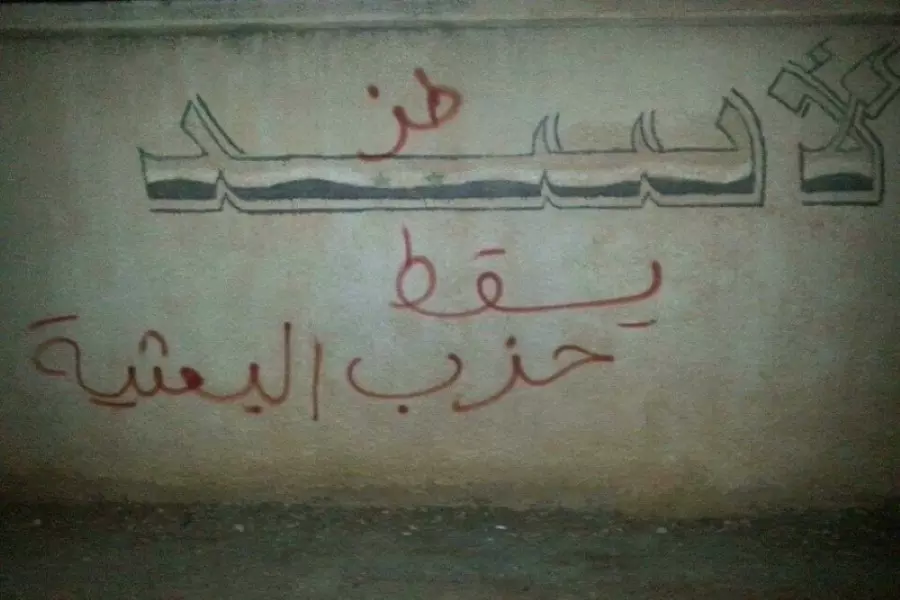 طز
الأسد
يسقط
حزب البعثية